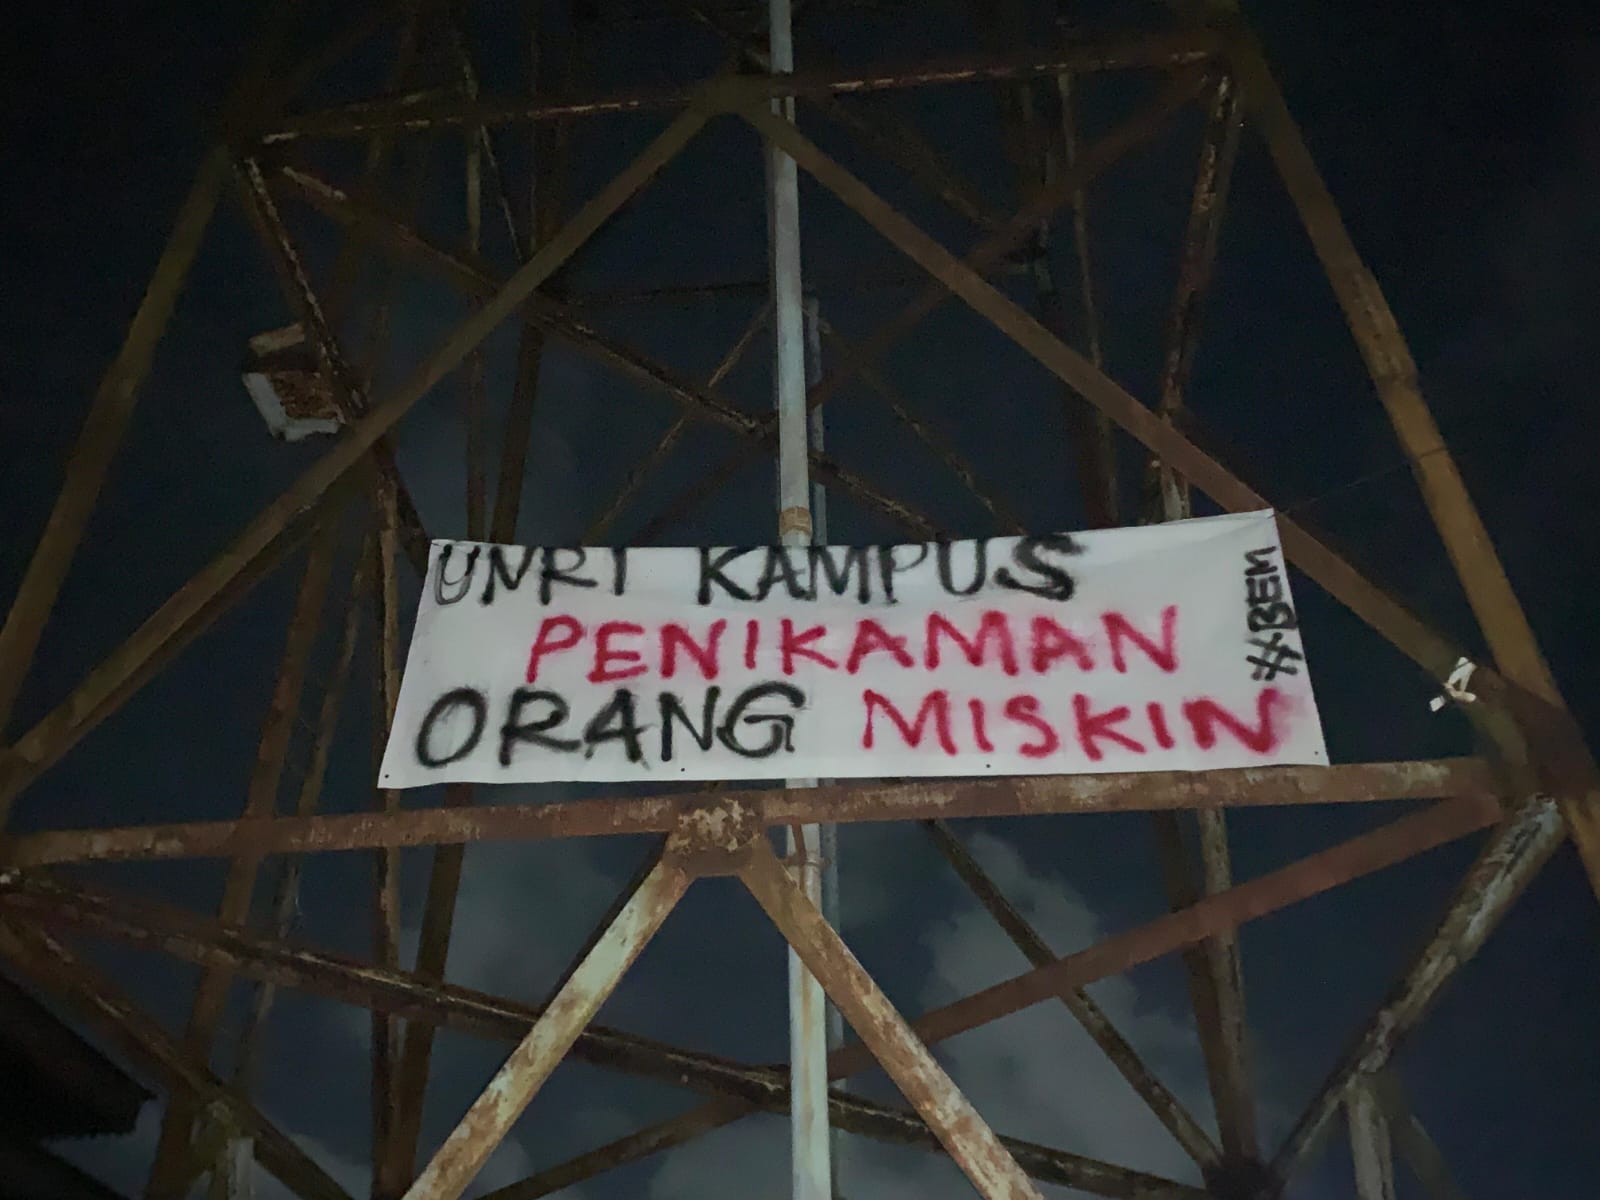 UNRI KAMPUS
PENIKAMAN
ORANG MISKIN
#BEM